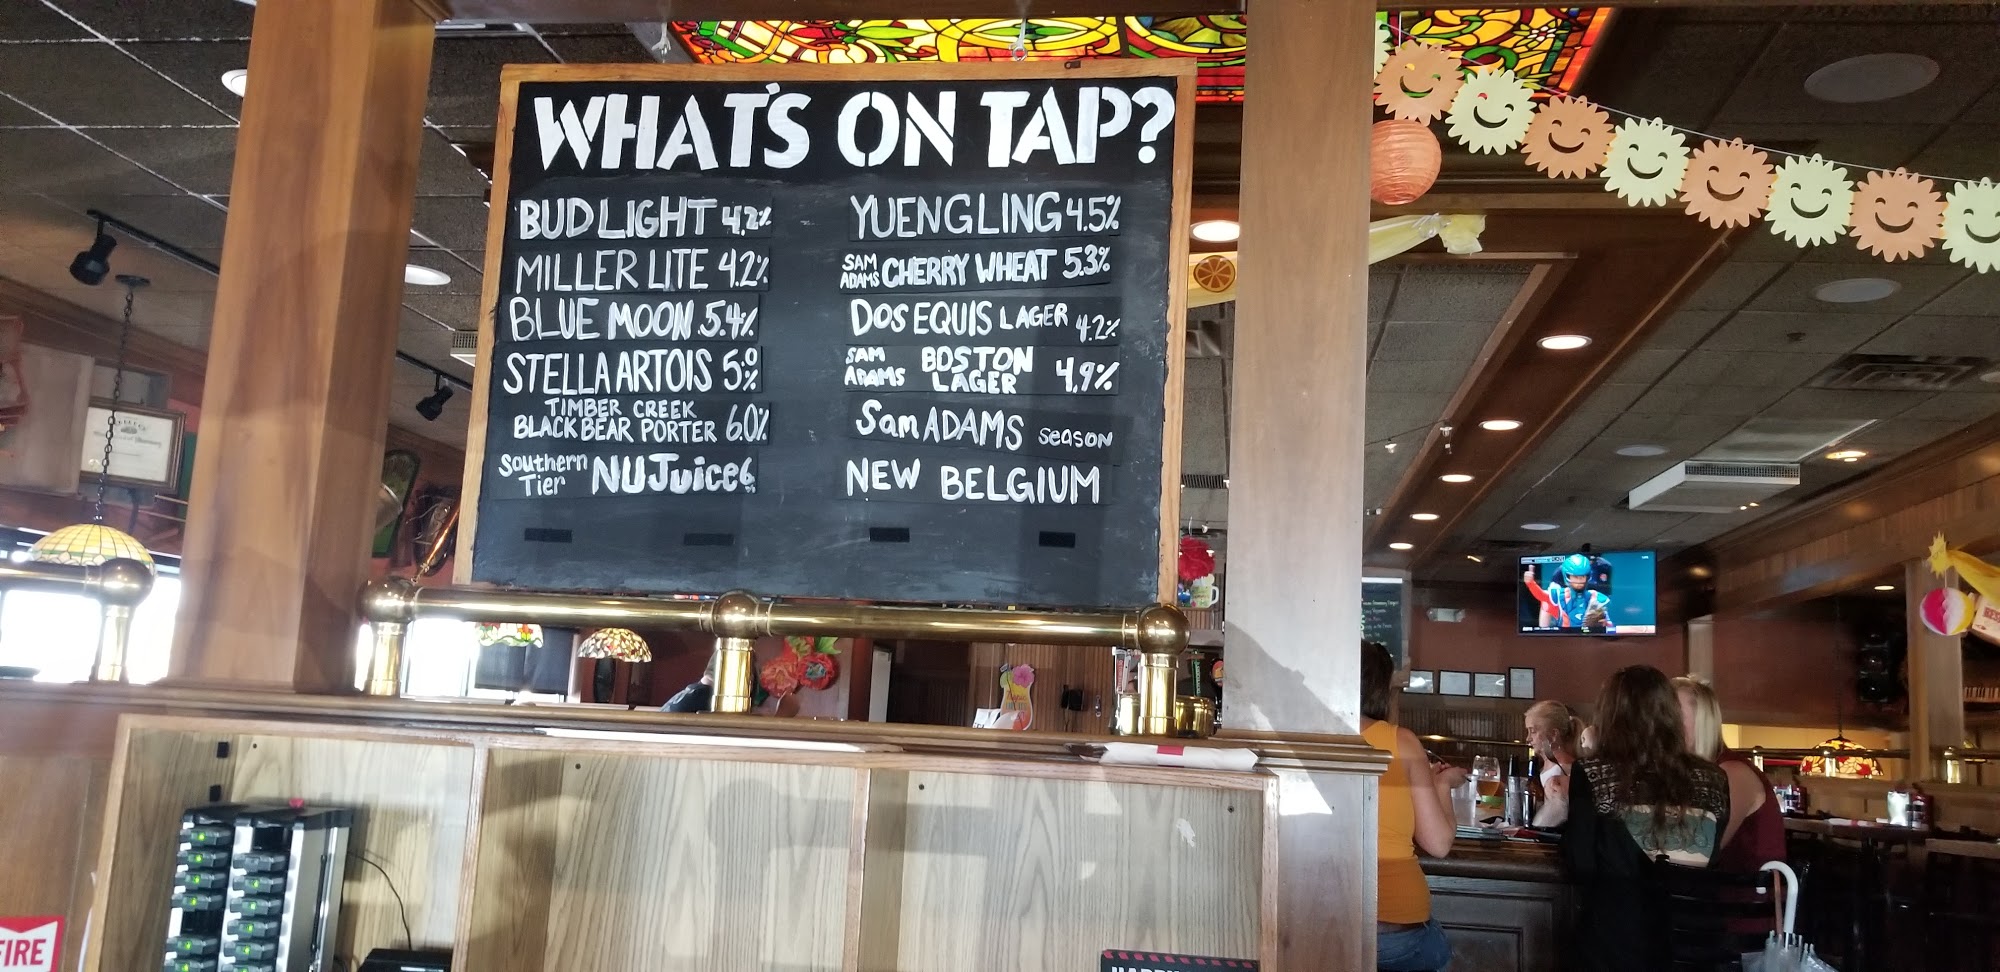 WHAT'S ON TAP?
BUD LIGHT 4.2%
MILLER LITE 4.2%
BLUE MOON 5.4%
STELLA ARTOIS 5%
TIMBER CREEK
BLACK BEAR PORTER 6.0%
Southern
Tier NU Juice 6
YUENGLING 4.5%
SAM
ADAMS CHERRY WHEAT 5.3%
DOS EQUIS LAGER 4.2%
SAM
ADAMS BOSTON
LAGER 4.9%
Sam ADAMS season
NEW BELGIUM
FIRE